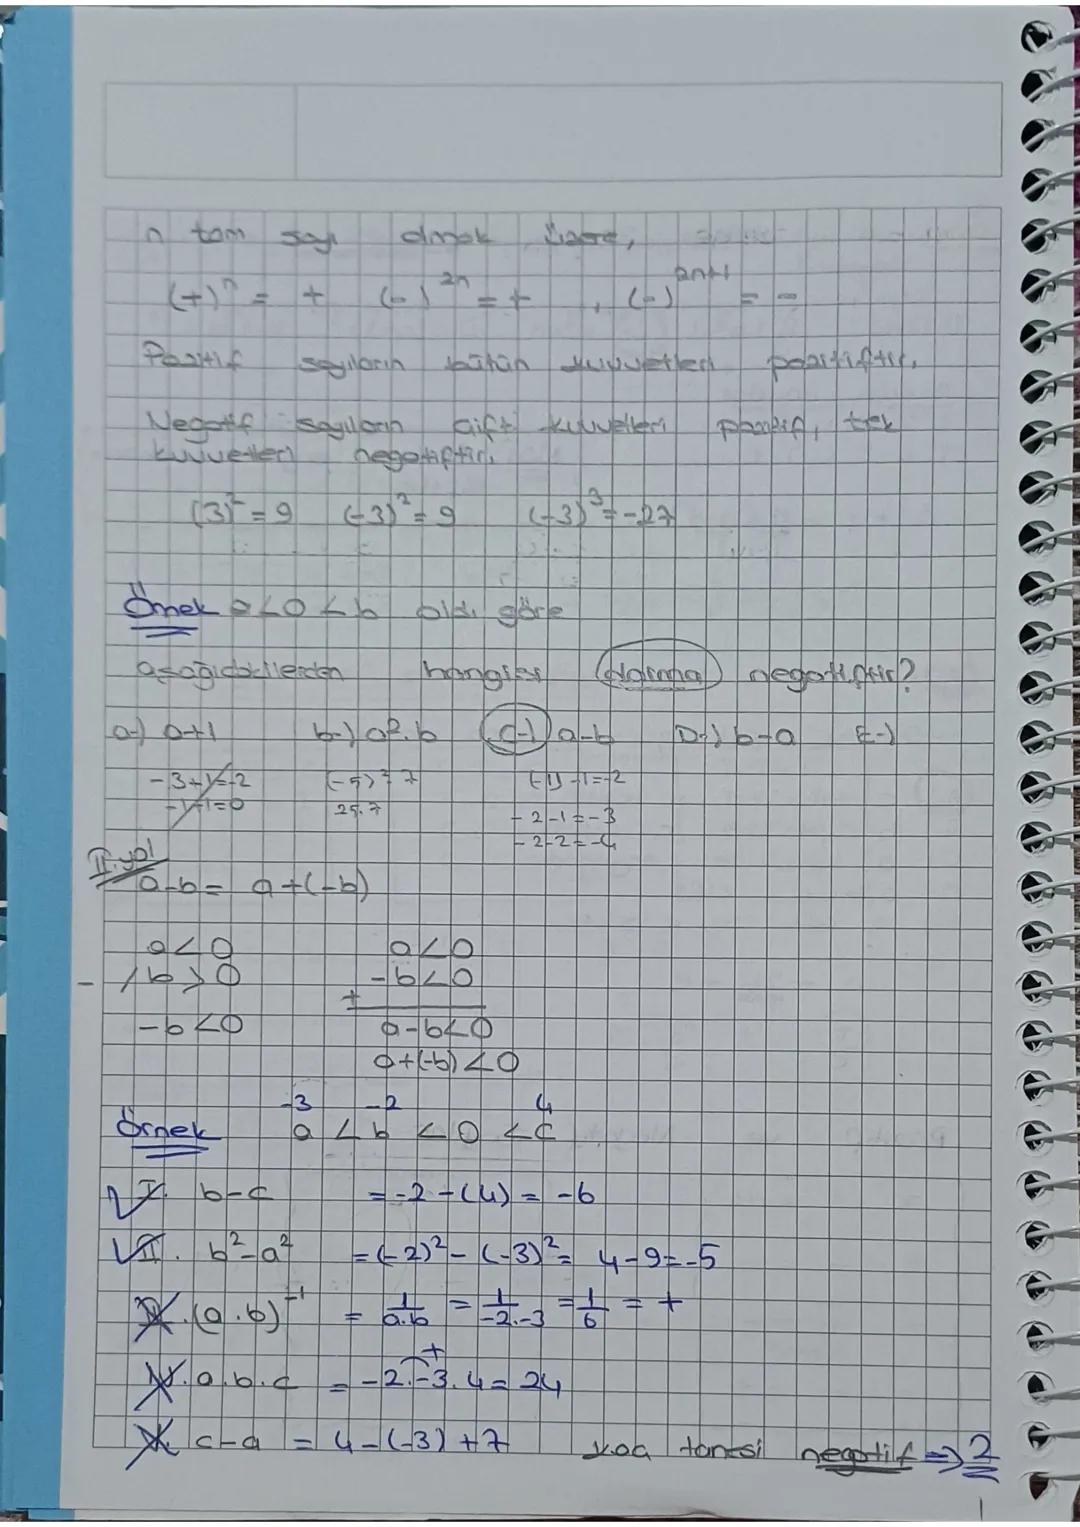 n tam sayı olmak üzere,
(+)ⁿ = + (-)²ⁿ = + , (-)²ⁿ⁺¹ = -
Pozitif sayıların bütün kuvvetleri pozitiftir.
Negatif sayıların çift kuvvetleri pozitif, tek
kuvvetleri negatiftir.
(3)² = 9 (-3)² = 9 (-3)³ = -27
Örnek a<0<b old. göre
aşağıdakilerden hangisi daima negatiftir?
a-) a+1 b-) a².b c-) a-b D-) b-a E-)
-3+1=-2 (-5)².7 (-1)-1=-2
-1+1=0 25.7 -2-1=-3
-2-2=-4
II. yol
a-b = a+(-b)
a<0 a<0
- / b>0 -b<0
+
-b<0 a-b<0
a+(-b)<0
-3 -2 4
Örnek a < b < 0 < c
I. b-c = -2-(4) = -6
II. b²-a² = (-2)²-(-3)² = 4-9=-5
III. (a.b)⁻¹ = 1/a.b = 1/-2.-3 = 1/6 = +
+
IV. a.b.c = -2.-3.4 = 24
V. c-a = 4-(-3) +7 kaç tanesi negatif ⇒ 2